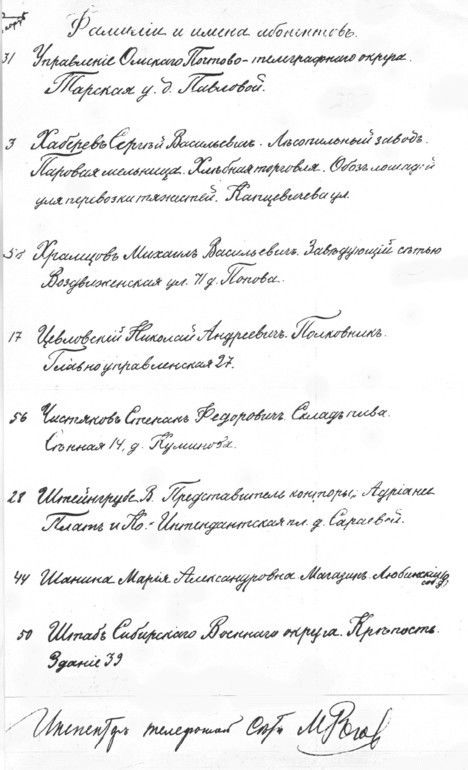 Фамиліи и имена абонентовъ.
31 Управленіе Омскаго Почтово-телеграфнаго округа.
Тарская у. д. Павловой.
3 Хабаревъ Сергѣй Васильевичъ. Лѣсопильный заводъ.
Паровая мельница. Хлѣбная торговля. Обозъ лошадей
для перевозки тяжестей. Капцевичева ул.
Храмцовъ Михаилъ Васильевичъ. Завѣдующій сѣтью
Воздвиженская ул. 71 д. Попова.
17 Цевловскій Николай Андреевичъ. Полковникъ.
Главноуправленская 27.
56 Чистяковъ Степанъ Федоровичъ. Складъ пива.
Сѣнная 14, д. Куминова.
28 Штейнгрубе В. Представитель конторы: Адріансъ
Платъ и Ко. - Интендантская пл. д. Сараевой.
44 Шанина Марія Александровна Магазинъ. Любинскій
50 Штабъ Сибирскаго Военнаго округа. Крѣпость.
Зданіе 39
Инспекторъ телефонной сѣти М Рогов